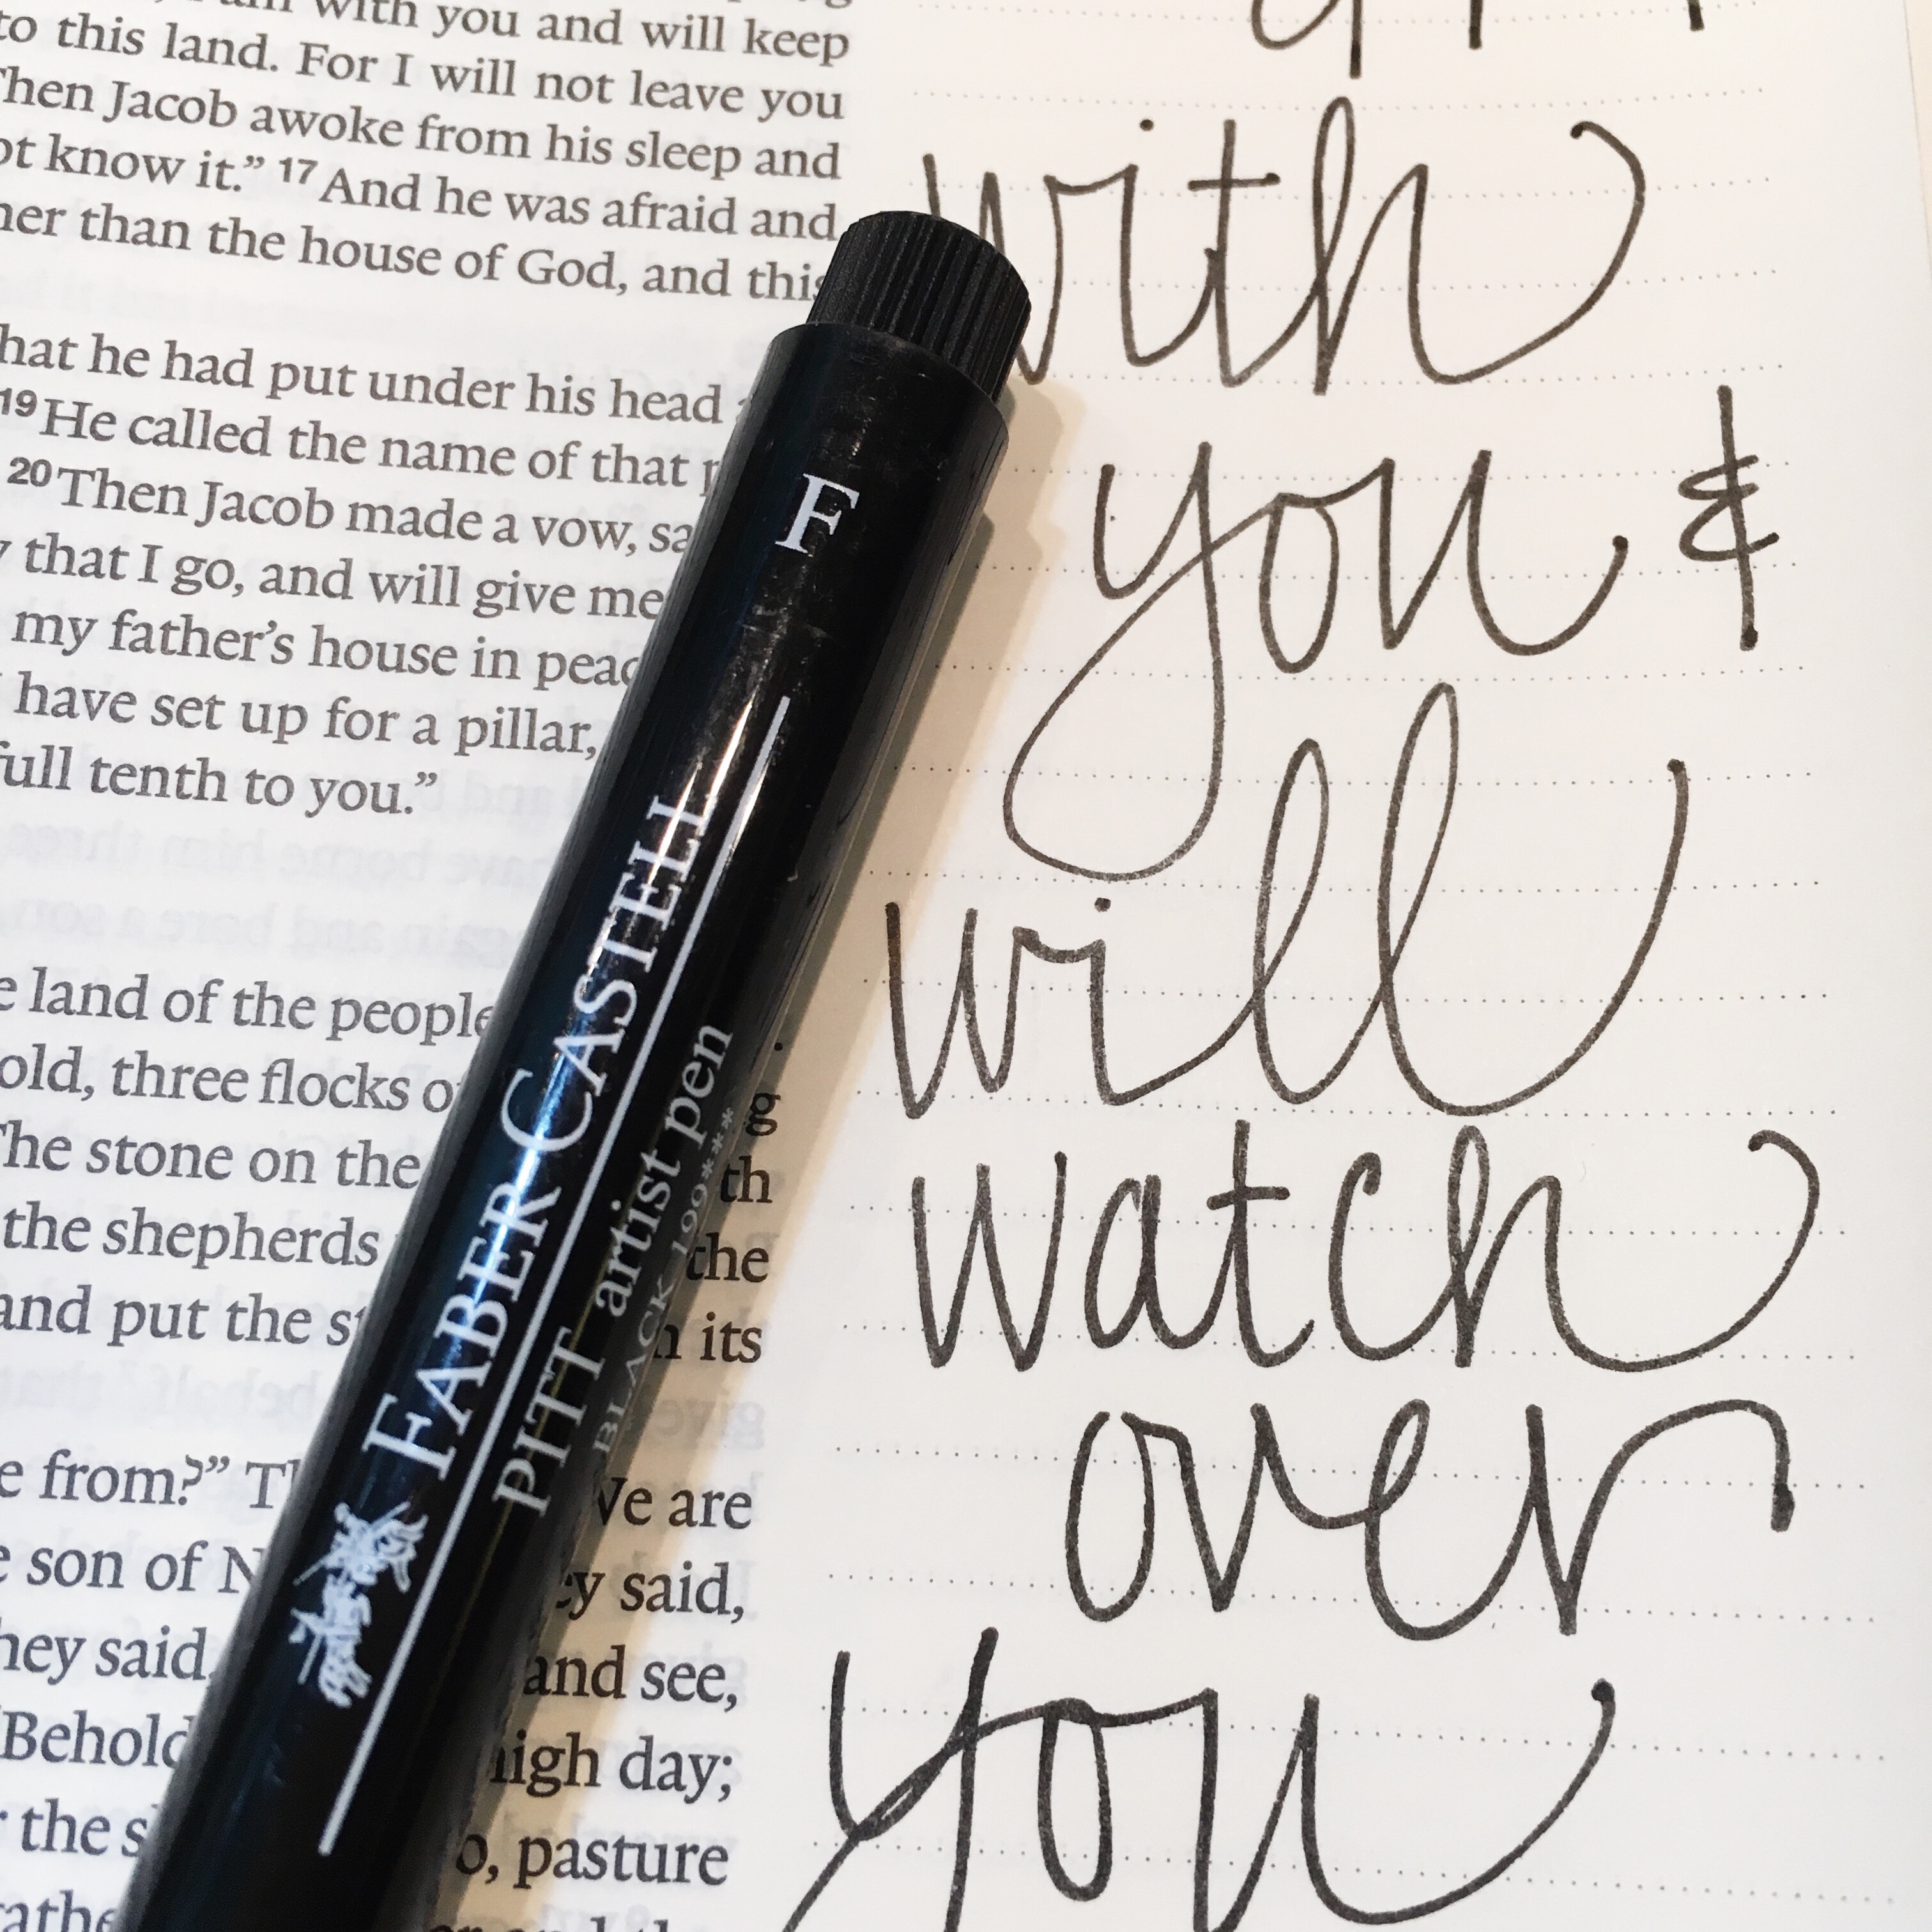 with you and will keep
to this land. For I will not leave you
Then Jacob awoke from his sleep and
not know it.” 17 And he was afraid and
than the house of God, and this
that he had put under his head
19 He called the name of that
20 Then Jacob made a vow,
that I go, and will give me
my father’s house in
have set up for a pillar,
full tenth to you.”
land of the people
three flocks
The stone on the
the shepherds
and put the
from?” We are
son of said,
they said, and see,
“Behold high day;
the pasture
the
its
F
FABER-CASTELL
PITT artist pen
BLACK 199*****
with
you &
will
watch
over
you